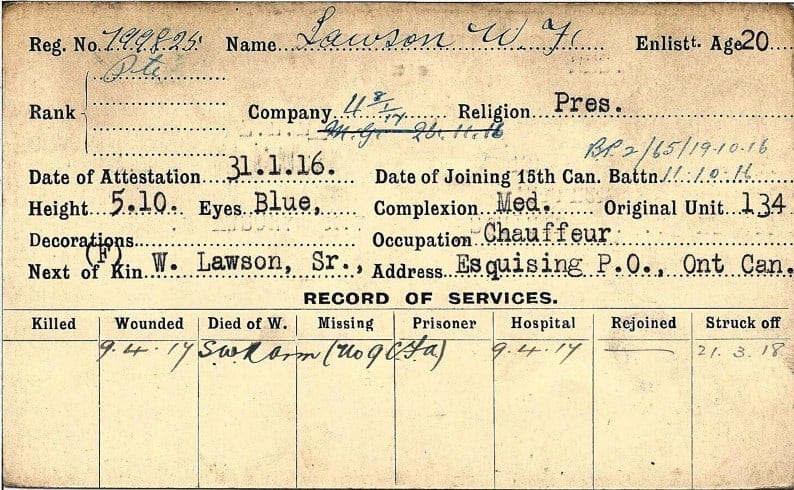 Reg. No. 799825 Name Lawson W. F. Enlistt. Age 20
Pte
Rank Company 4 8/1/17 Religion Pres.
M.G. 26.11.16
B.P. 2/65/19.10.16
Date of Attestation 31.1.16. Date of Joining 15th Can. Battn. 11.10.16
Height 5.10. Eyes Blue, Complexion Med. Original Unit 134
Decorations Occupation Chauffeur
(F)
Next of Kin W. Lawson, Sr., Address Esquising P.O., Ont Can.
RECORD OF SERVICES.
Killed Wounded Died of W. Missing Prisoner Hospital Rejoined Struck off
9.4.17 SW R arm (No 9 C Fa) 9.4.17 — 21.3.18